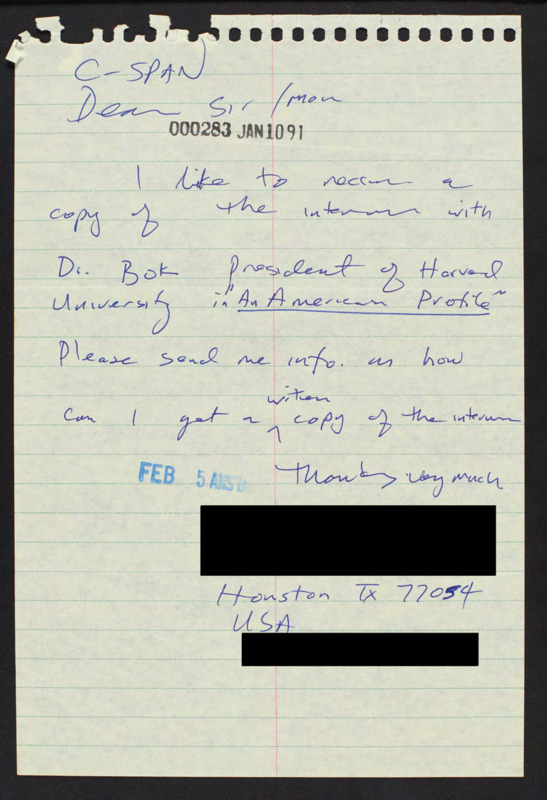 C-SPAN
Dear Sir /mam
000283 JAN1091
I like to receive a
copy of the interview with
Dr. Bok President of Harvard
University in "An American Profile"
Please send me info. on how
written
can I get a copy of the interview
FEB 5
Thanks very much
Houston TX 77054
USA